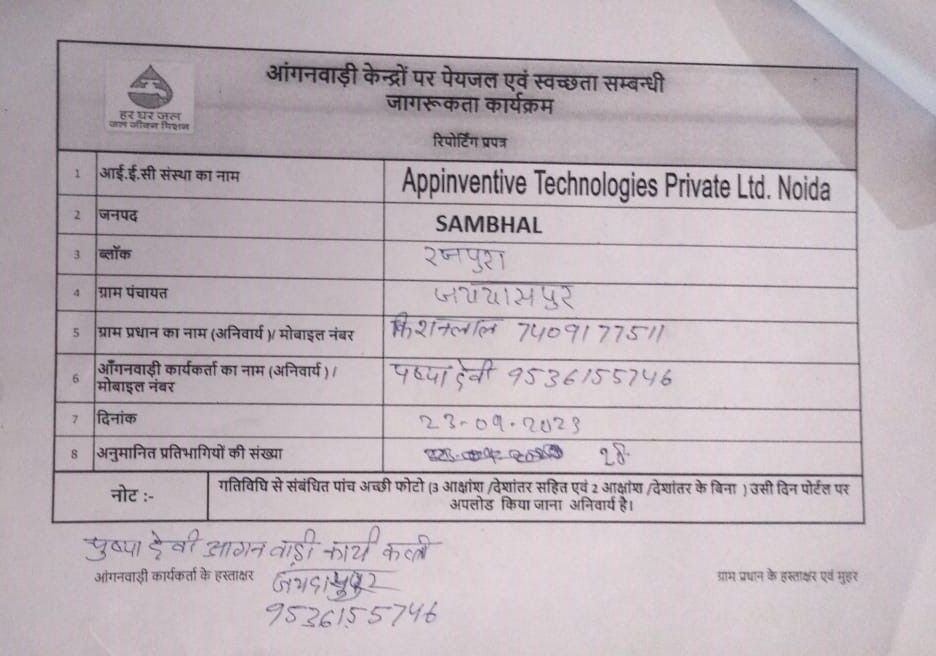 आंगनवाड़ी केन्द्रों पर पेयजल एवं स्वच्छता सम्बन्धी
जागरूकता कार्यक्रम
हर घर जल
जल जीवन मिशन
रिपोर्टिंग प्रपत्र
1 आई.ई.सी संस्था का नाम Appinventive Technologies Private Ltd. Noida
2 जनपद SAMBHAL
3 ब्लॉक रजपुरा
4 ग्राम पंचायत
5 ग्राम प्रधान का नाम (अनिवार्य )/ मोबाइल नंबर किशनलाल 7409177511
6 आँगनवाड़ी कार्यकर्ता का नाम (अनिवार्य ) /
मोबाइल नंबर पष्पा देवी 9536155746
7 दिनांक 23-09-2023
8 अनुमानित प्रतिभागियों की संख्या
नोट :- गतिविधि से संबंधित पांच अच्छी फोटो (3 आक्षांश /देशांतर सहित एवं 2 आक्षांश /देशांतर के बिना ) उसी दिन पोर्टल पर
अपलोड किया जाना अनिवार्य है।
पुष्पा देवी आगनवाड़ी कार्य
आंगनवाड़ी कार्यकर्ता के हस्ताक्षर
ग्राम प्रधान के हस्ताक्षर एवं मुहर
9536155746